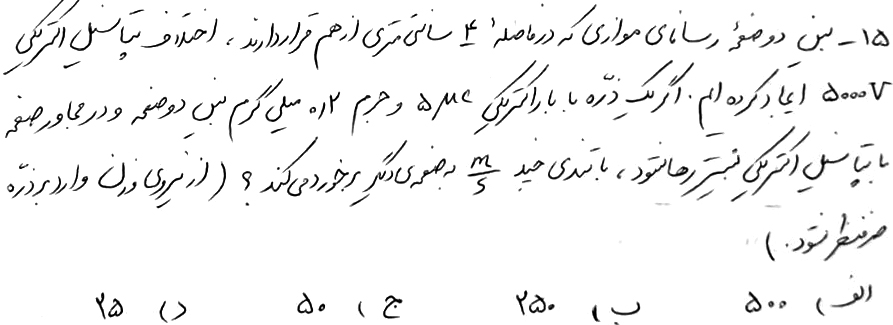 ۱۵- بین دو صفحهٔ رسانای موازی که در فاصلهٔ ۴ سانتی متری از هم قرار دارند، اختلاف پتانسیل الکتریکی
۵۰۰۰V ایجاد کرده ایم. اگر یک ذرّه با بار الکتریکی ۵μc و جرم ۰٫۲ میلی گرم بین دو صفحه و در مجاور صفحه
با پتانسیل الکتریکی بیشتر رها شود، با تندی چند m/s به صفحه ی دیگر برخورد می کند؟ (از نیروی وزن وارد بر ذرّه
صرفنظر شود.)
الف) ۵۰۰ ب) ۲۵۰ ج) ۵۰ د) ۲۵